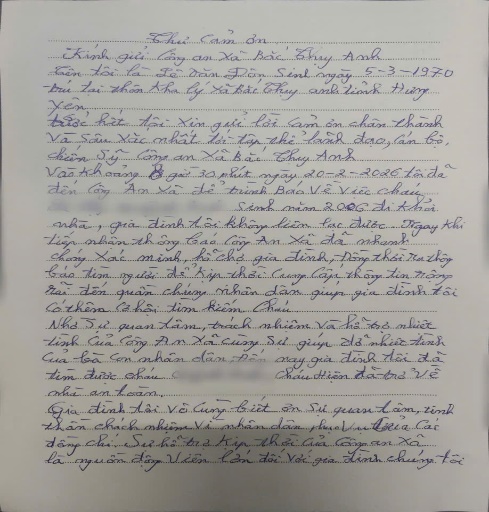 Thư Cảm ơn
Kính gửi Công an Xã Bắc Thụy Anh
Tên tôi là Đỗ Văn Đoàn Sinh ngày 5-3-1970
trú tại thôn Kha lý Xã Bắc Thụy anh tỉnh Hưng
Yên
trước hết tôi Xin gửi lời Cảm ơn chân thành
Và Sâu Xắc nhất tới tập thể lãnh đạo, Cán bộ,
chiến Sỹ Công an Xã Bắc Thụy Anh
Vào Khoảng 8 giờ 30 phút ngày 20-2-2026 tôi đã
đến Công An Xã để trình Báo Về Việc Cháu
Sinh năm 2006 đi Khỏi
nhà, gia đình tôi không liên lạc được. Ngay Khi
tiếp nhận thông báo Công An Xã đã nhanh
chóng Xác minh, hỗ chợ gia đình, Đồng thời Ra thông
báo tìm người để Kịp thời Cung Cấp thông tin Rộng
Rãi đến quần chúng nhân dân giúp gia đình tôi
Có thêm Cơ hội tìm kiếm Cháu
Nhờ Sự quan tâm, trách nhiệm Và hỗ trợ nhiệt
tình Của Công An Xã Cùng Sự giúp đỡ nhiệt tình
Của bà Con nhân dân Đến nay gia đình tôi đã
tìm được cháu Cháu Hiện đã trở Về
nhà an toàn.
Gia đình tôi Vô Cùng biết ơn Sự quan tâm, tinh
thần chách nhiệm Vì nhân dân phục Vụ Của Các
đồng chí. Sự hỗ trợ Kịp thời Của Công an Xã
là nguồn động Viên lớn đối Với gia đình chúng tôi